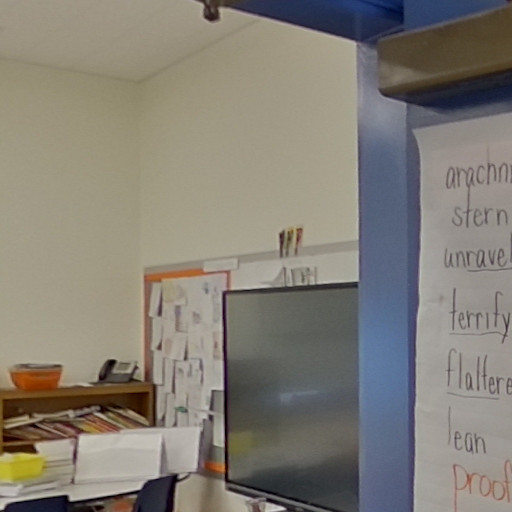 arachn
stern
unravel
terrify
flattere
lean
proof